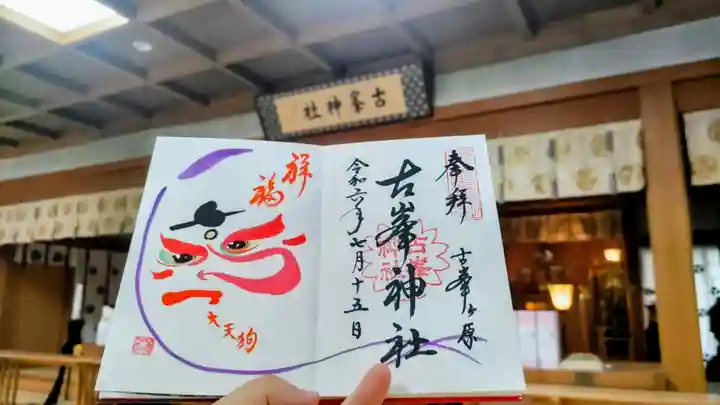 古峯神社
奉拝
古峯ヶ原
古峯神社
令和六年七月十五日
祥
福
大天狗